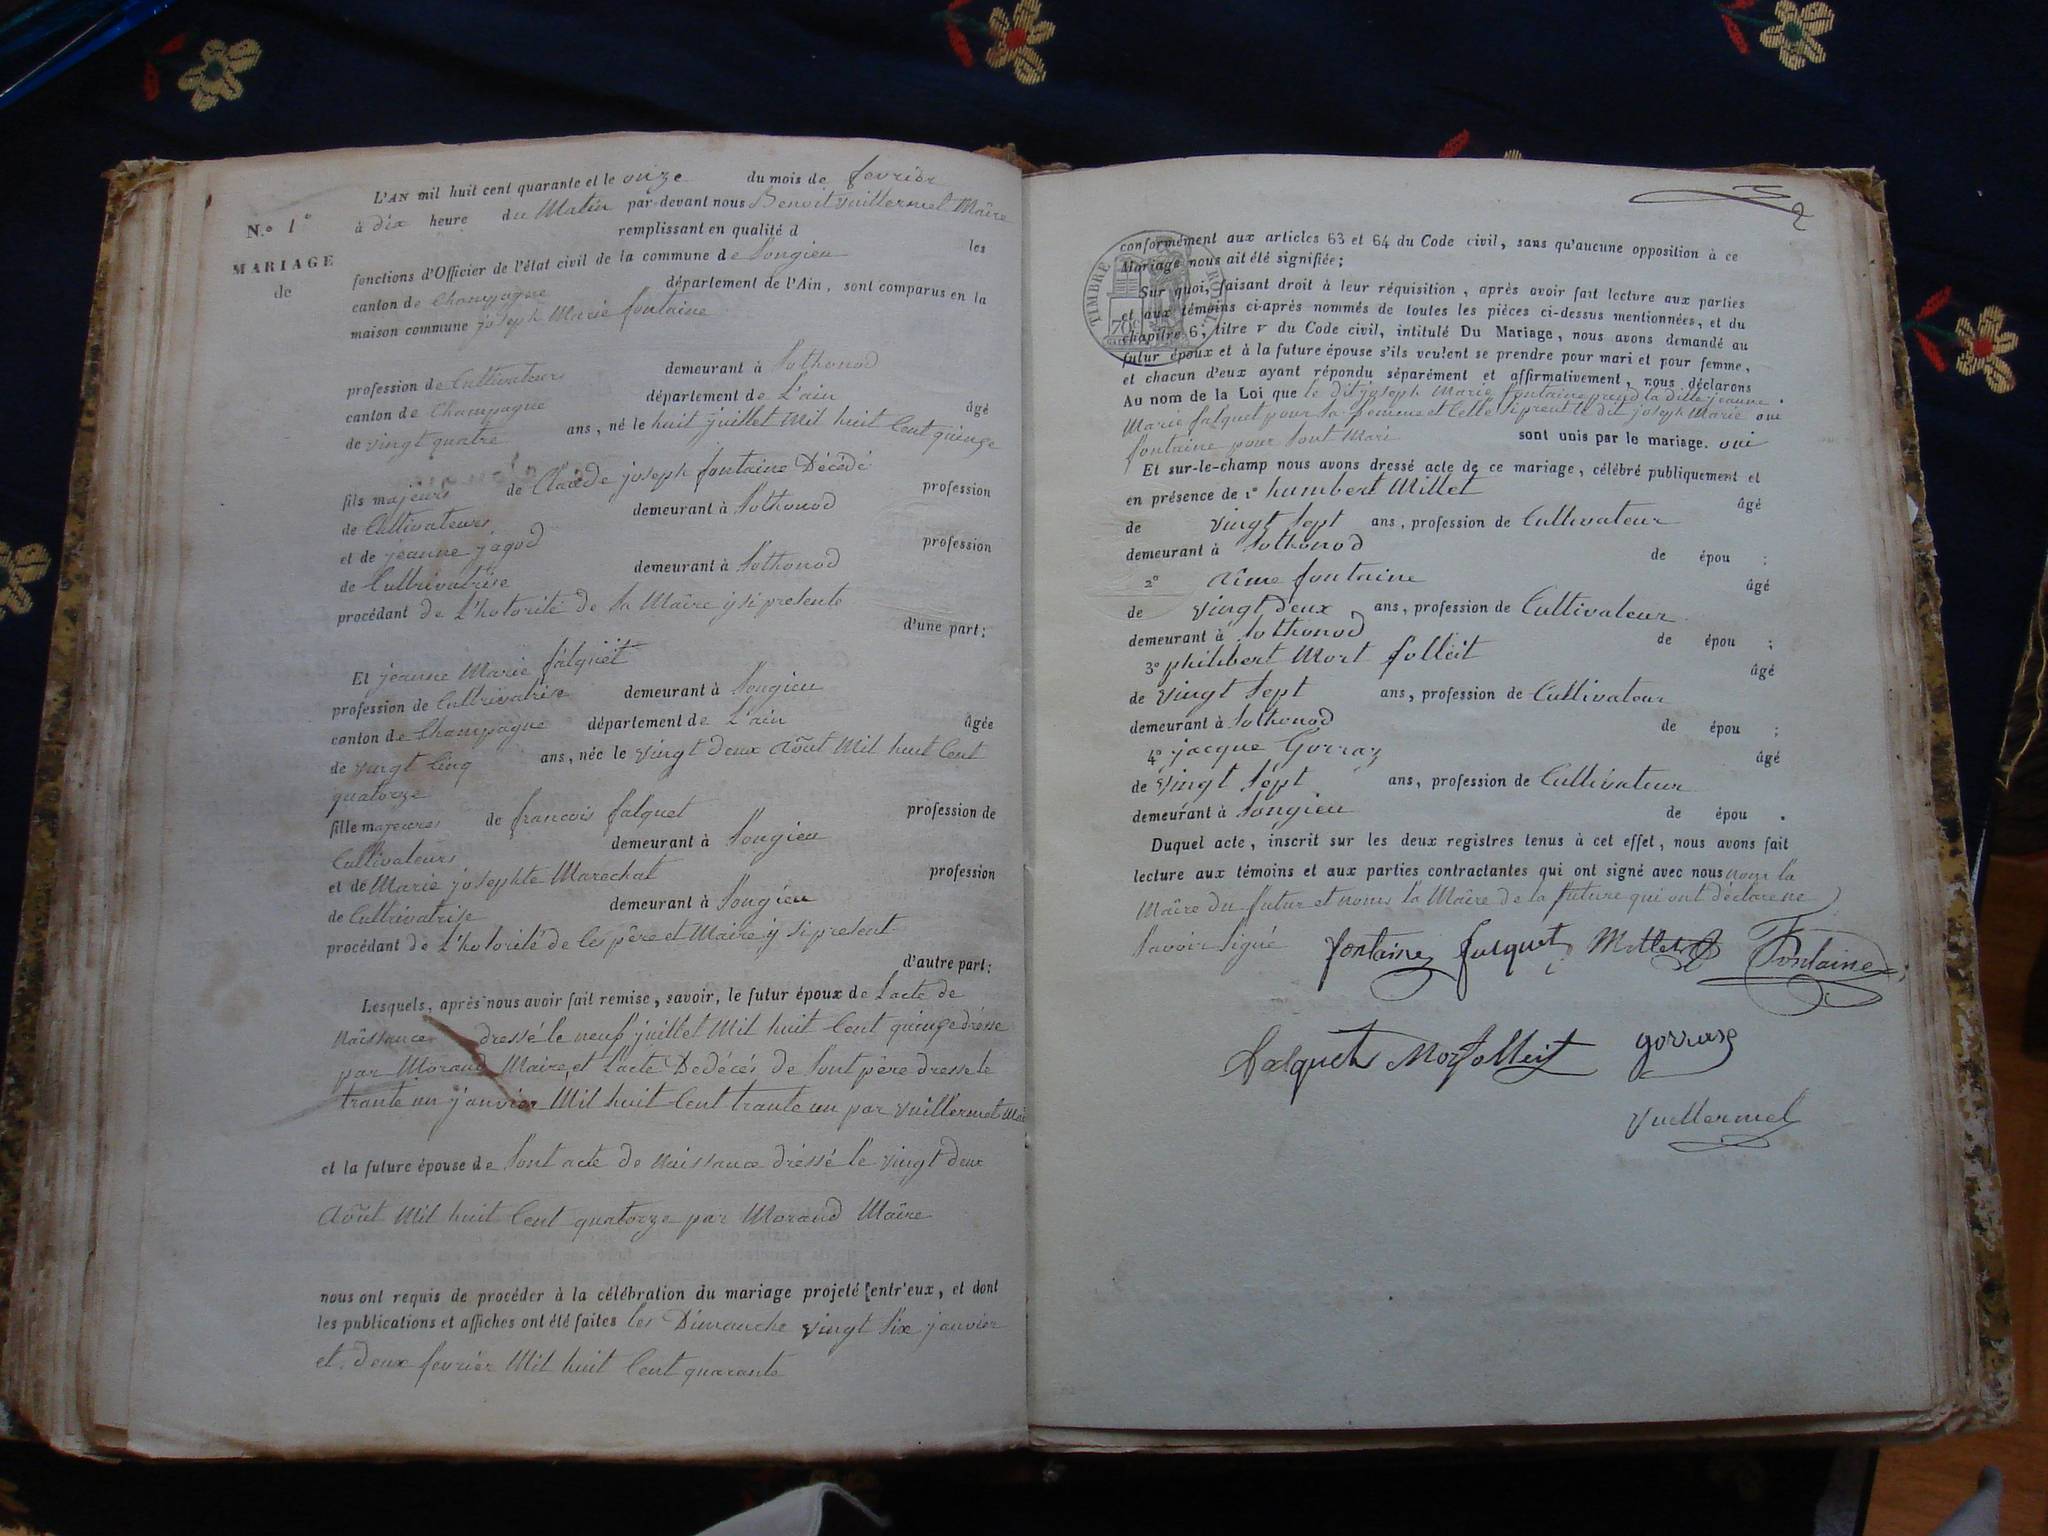 N.o 1o
MARIAGE
de
L'AN mil huit cent quarante et le onze du mois de fevrier
à dix heure du Matin par-devant nous Benoit Vuillermet Maire
remplissant en qualité d les
fonctions d'Officier de l'état civil de la commune de Songieu
canton de Champagne département de l'Ain, sont comparus en la
maison commune joseph Marie fontaine
profession de Cultivateurs demeurant à Sothonod
canton de Champagne département de L'ain âgé
de vingt quatre ans, né le huit juillet Mil huit Cent quinze
fils majeurs de Claude joseph fontaine Décédé profession
de Cultivateurs demeurant à Sothonod
et de jeanne jagod profession
de Cultrivatrise demeurant à Sothonod
procédant de L'hotorité de Sa Maire y si presente
d'une part;
Et jeanne Marie falquet
profession de Cultrivatrise demeurant à Songieu
canton de Champagne département de L'ain âgée
de vingt Cinq ans, née le vingt deux Août Mil huit Cent
quatorze
fille majeures de francois falquet profession de
Cultivateurs demeurant à Songieu
et de Marie josephte Marechal profession
de Cultrivatrise demeurant à Songieu
procédant de L'hotorité de Ces père et Maire y si present
d'autre part;
Lesquels, après nous avoir fait remise, savoir, le futur époux de L'acte de
Naissance dressé le neuf juillet Mil huit Cent quinze dresse
par Morand Maire, et L'acte De décés de Sont père dresse le
trante un janvier Mil huit Cent trante un par Vuillermet Mai
et la future épouse de Sont acte de Naissance dressé le vingt deux
Août Mil huit Cent quatorze par Morand Maîre
nous ont requis de procéder à la célébration du mariage projeté entr'eux, et dont
les publications et affiches ont été faites les Dimanche vingt Six janvier
et deux fevrier Mil huit Cent quarante
2
TIMBRE ROYAL
70c
conformément aux articles 63 et 64 du Code civil, sans qu'aucune opposition à ce
Mariage nous ait été signifiée;
Sur quoi, faisant droit à leur réquisition, après avoir fait lecture aux parties
et aux témoins ci-après nommés de toutes les pièces ci-dessus mentionnées, et du
chapitre 6, titre v du Code civil, intitulé Du Mariage, nous avons demandé au
futur époux et à la future épouse s'ils veulent se prendre pour mari et pour femme,
et chacun d'eux ayant répondu séparément et affirmativement, nous déclarons
Au nom de la Loi que le dit joseph Marie fontaine prend la ditte jeanne
Marie falquet pour Sa femme et Celle Si prent le dit joseph Marie oui
fontaine pour Sont Mari sont unis par le mariage. oui
Et sur-le-champ nous avons dressé acte de ce mariage, célébré publiquement et
en présence de 1o humbert Millet âgé
de vingt Sept ans, profession de Cultivateur
demeurant à Sothonod de épou ;
2o Aime fontaine âgé
de vingt deux ans, profession de Cultivateur
demeurant à Sothonod de épou ;
3o philibert Mort follêit âgé
de vingt Sept ans, profession de Cultivateur
demeurant à Sothonod de épou ;
4o jacque Gorraz âgé
de vingt Sept ans, profession de Cultivateur
demeurant à Songieu de épou .
Duquel acte, inscrit sur les deux registres tenus à cet effet, nous avons fait
lecture aux témoins et aux parties contractantes qui ont signé avec nous nom la
Maîre du futur et nomt la Maîre de la future qui ont déclare ne
Savoir Signé fontaine falquet Millet Fontaine
falquet Morfolleit gorraz
Vuillermet